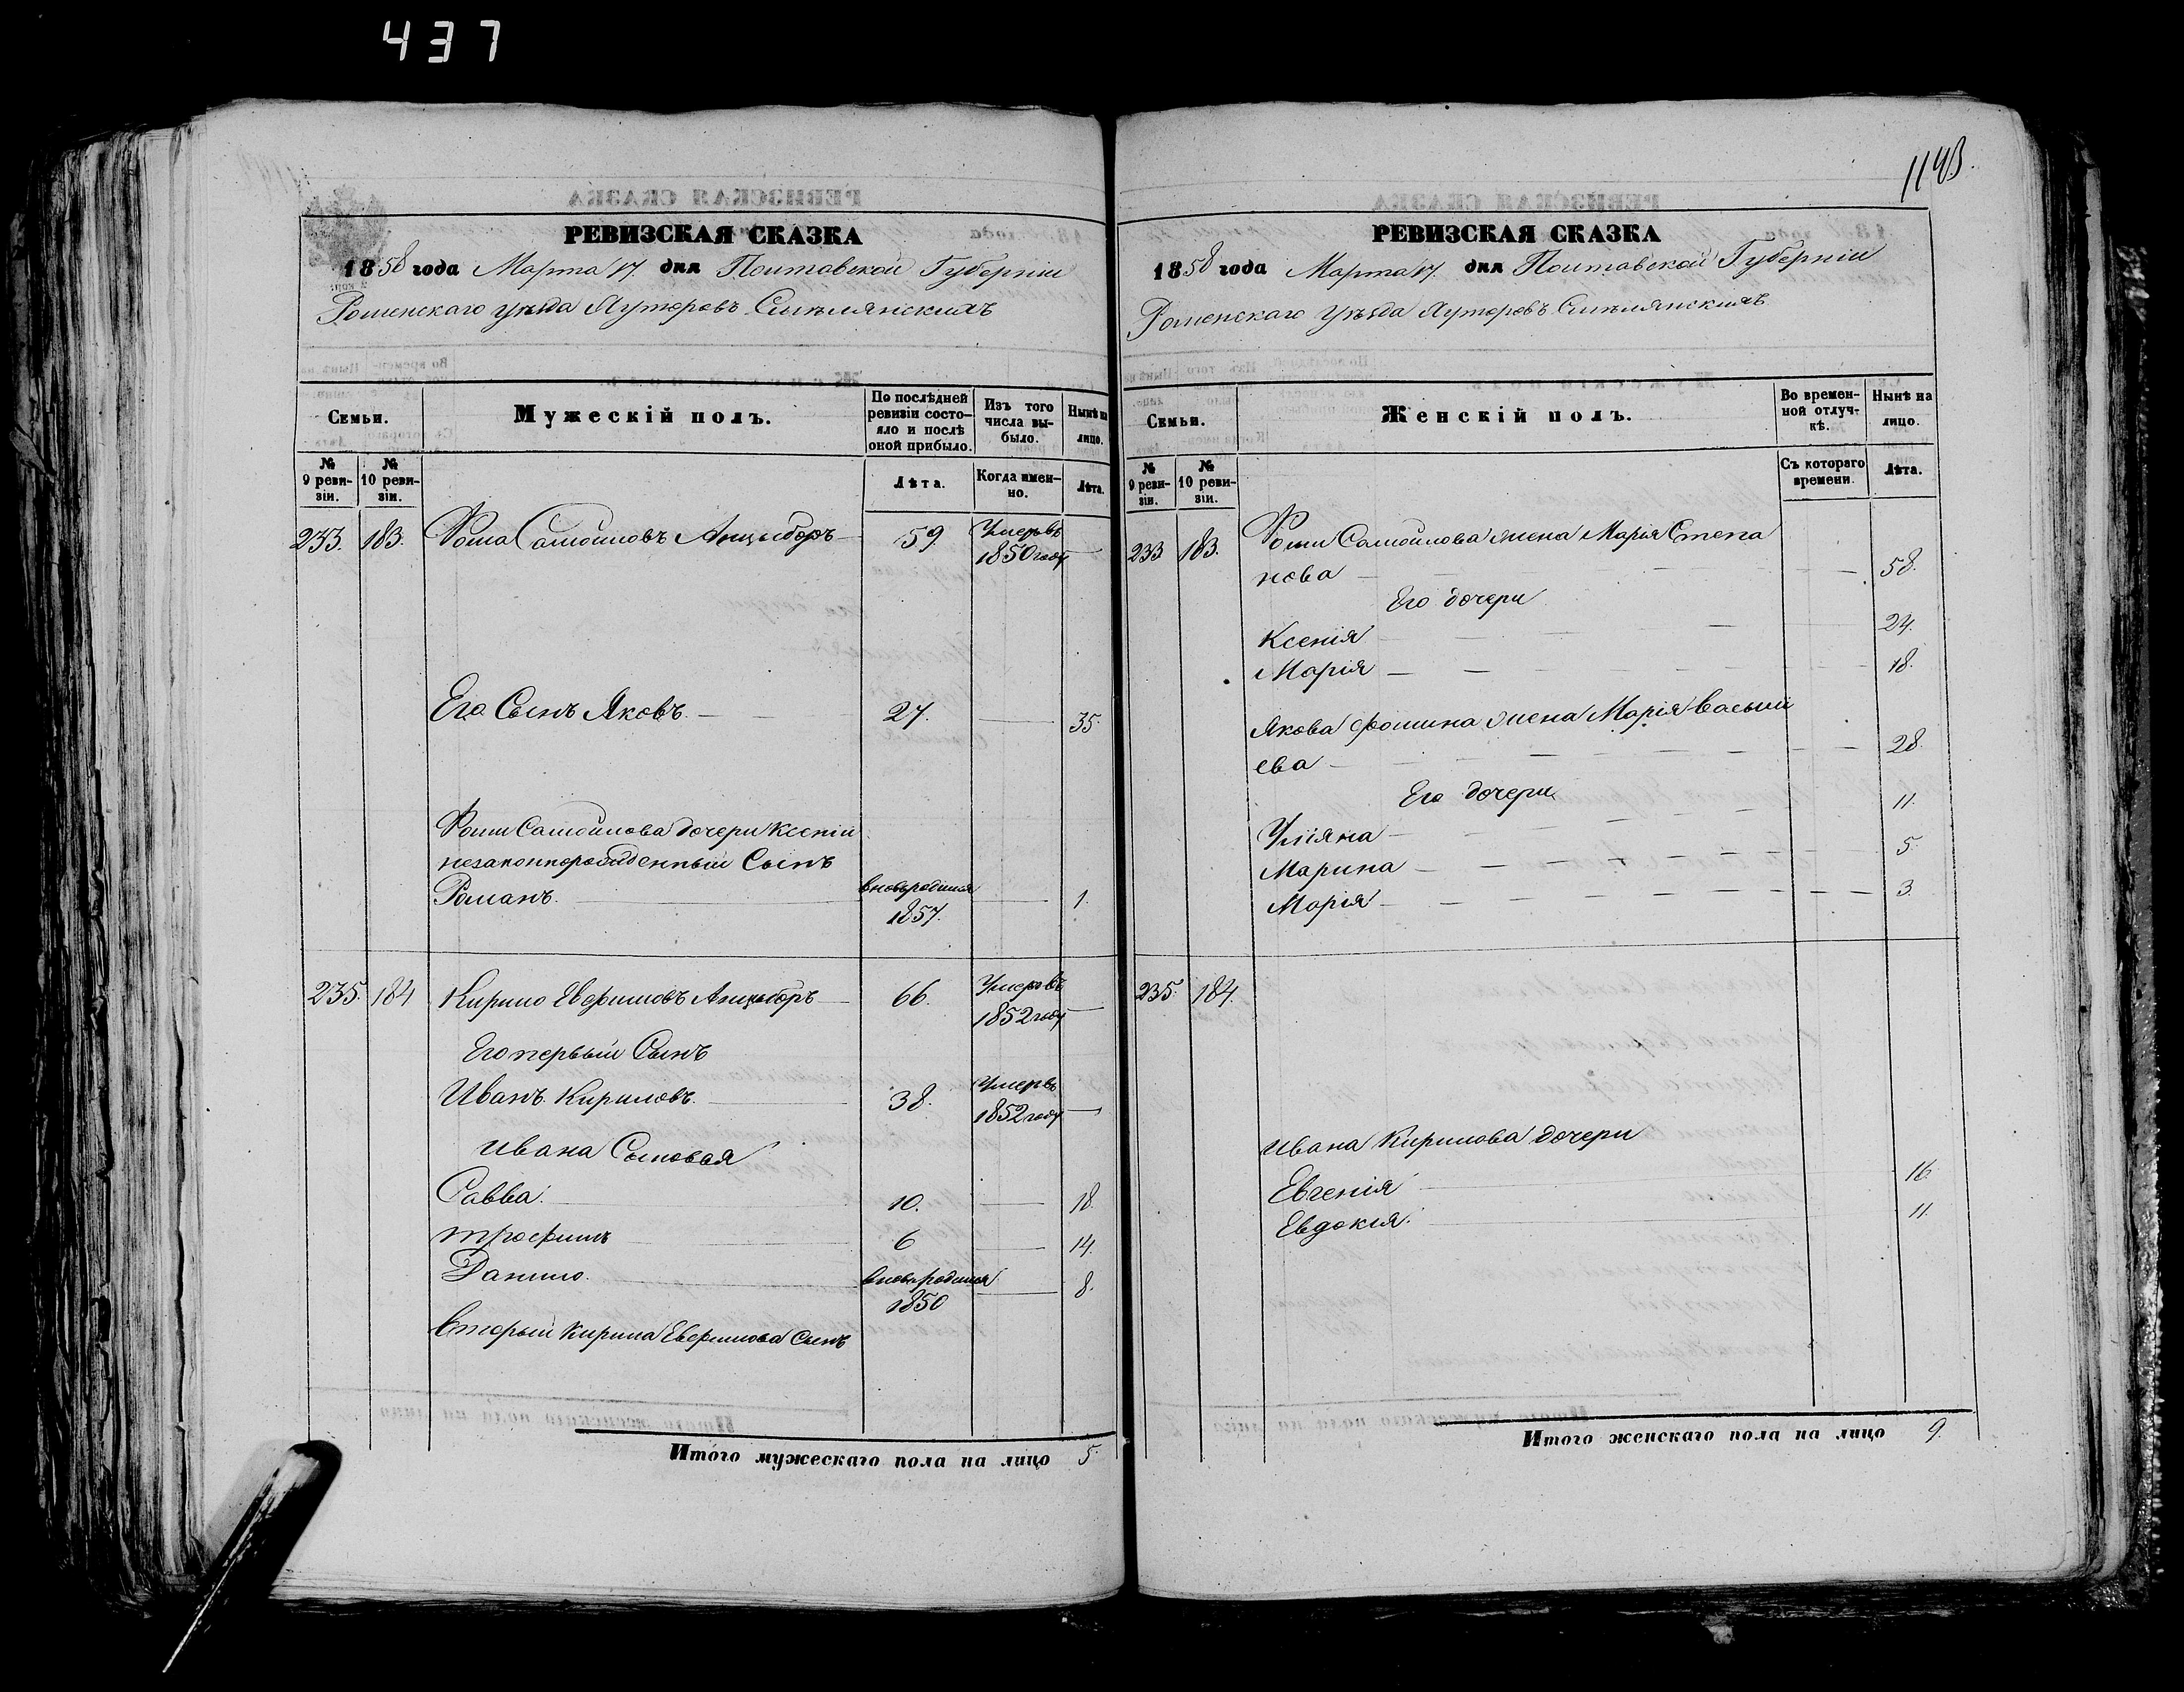 437
1143.
РЕВИЗСКАЯ СКАЗКА
1858 года Марта 17. дня Полтавской Губерніи
Роменскаго уѣзда Хуторовъ Смѣлянскихъ
Семьи.
Мужескій полъ.
По послѣдней ревизіи состояло и послѣ оной прибыло.
Изъ того числа выбыло.
Нынѣ на лицо.
№ 9 ревизіи.
№ 10 ревизіи.
Лѣта.
Когда именно.
Лѣта.
233. 183. Фома Самойловъ Анцыборъ 59. Умеръ въ 1850 году
Его Сынъ Яковъ. 27. 35.
Фомы Самойлова дочери Ксеніи
незаконнорожденный Сынъ
Романъ. вновь родился 1857. 1.
235. 184 Кирило Евфимовъ Анцыборъ 66. Умеръ въ 1852 году
Его первый Сынъ
Иванъ Кириловъ. 38. Умеръ въ 1852 году
Ивана Сыновья
Савва. 10. 18.
Трофимъ 6 14.
Данило. вновь родился 1850 8.
Вторый Кирила Евфимова Сынъ
Итого мужескаго пола на лицо 5.
РЕВИЗСКАЯ СКАЗКА
1858 года Марта 17. дня Полтавской Губерніи
Роменскаго уѣзда Хуторовъ Смѣлянскихъ
Семьи.
Женскій полъ.
Во временной отлучкѣ.
Нынѣ на лицо.
№ 9 ревизіи.
№ 10 ревизіи.
Съ котораго времени.
Лѣта.
233 183. Фомы Самойлова жена Марія Степа
нова 58.
Его дочери
Ксенія 24.
Марія 18.
Якова Фомина жена Марія Васильи
ева 28.
Его дочери
Уліяна 11.
Марина 5.
Марія 3.
235. 184.
Ивана Кирилова дочери
Евгенія 16.
Евдокія. 11.
Итого женскаго пола на лицо 9.